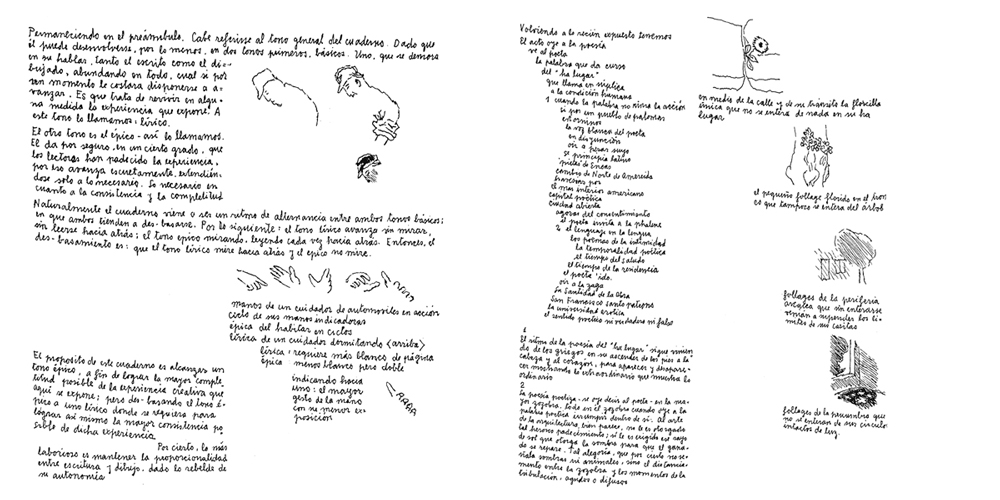 Permaneciendo en el preámbulo. Cabe referirse al tono general del cuaderno. Dado que
él puede desenvolverse, por lo menos, en dos tonos primeros, básicos. Uno, que se demora
en su hablar, tanto el escrito como el di-
bujado, abundando en todo, cual si por
un momento le costara disponerse a a-
vanzar. Es que trata de revivir en algu-
na medida la experiencia que expone. A
este tono lo llamamos: lírico.
El otro tono es el épico - así lo llamamos.
Él da por seguro, en un cierto grado, que
los lectores han padecido la experiencia,
por eso avanza escuetamente, extendién-
dose solo a lo necesario. Lo necesario en
cuanto a la consistencia y la completitud
Naturalmente el cuaderno viene a ser un ritmo de alternancia entre ambos tonos básicos;
en que ambos tienden a des-basarse. Por lo siguiente: el tono lírico avanza sin mirar,
sin leerse hacia atrás; el tono épico mirando, leyendo cada vez hacia atrás. Entonces, el
des-basamiento es: que el tono lírico mire hacia atrás y el épico no mire.
manos de un cuidador de automóviles en acción
ciclo de sus manos indicadoras
épica del habitar en ciclos
lírica de un cuidador dormitando (arriba)
lírica: requiere más blanco de página
épica menos blanco pero doble
indicando hacia
uno: el mayor
gesto de la mano
con su menor ex-
posición
El propósito de este cuaderno es alcanzar un
tono épico, a fin de lograr la mayor comple-
titud posible de la experiencia creativa que
aquí se expone; pero des-basando el tono é-
pico a uno lírico donde se requiera para
lograr así mismo la mayor consistencia po-
sible de dicha experiencia.
Por cierto, lo más
laborioso es mantener la proporcionalidad
entre escritura y dibujo, dado lo rebelde de
su autonomía
Volviendo a la acción expuesta tenemos
El acto oye a la poesía
ve al poeta
la palabra que da curso
del "ha lugar"
que llama en súplica
a la condición humana
1 cuando la palabra no rima la acción
la voz blanca del poeta
en disyunción
oír a pesar suyo
se principia latino
"pietas" de Eneas
cambio de Norte de América
travesías por
el mar interior americano
capital poética
ciudad abierta
ágoras del consentimiento
el poeta invita a la phalène
2 el lenguaje en la lengua
los poemas de la intimidad
la temporalidad poética
el tiempo del saludo
el tiempo de la residencia
el poeta
oír a la zaga
la Santidad de la Obra
San Francisco santo patrono
la universidad erótica
el sentido poético ni verdadero ni falso
en medio de la calle y de su tránsito la florcilla
única que no se entera de nada en su ha
lugar
el pequeño follaje florido en el tron
co que tampoco se entera del árbol
follages de la periferia
arbolea que sin enterarse
vienen a suspender los lí-
mites de sus casitas
follages de la penumbra que
no se enteran de sus círculos
intactos de luz.
1
El ritmo de la poesía del "ha lugar" sigue
do de los griegos en su ascender de los pies a la
cabeza y al corazón, para aparecer y desapare-
cer mostrando lo extraordinario que muestra lo
ordinario
2
La poesía poetiza - se oye decir al poeta - en la ma-
yor zozobra. Toda en el zozobra cuando oye a la
palabra poética irrumpir dentro de sí. Al arte
de la arquitectura, bien parece, no le es otorgado
tal heroico padecimiento; sí le es exigido ese rayo
de sol que otorga la sombra para que el gana-
do se repare. Tal alegoría, que por cierto no se-
ñala sombras ni animales, sino el distancia-
miento entre la zozobra y los momentos de la
tribulación, agudos o difusos